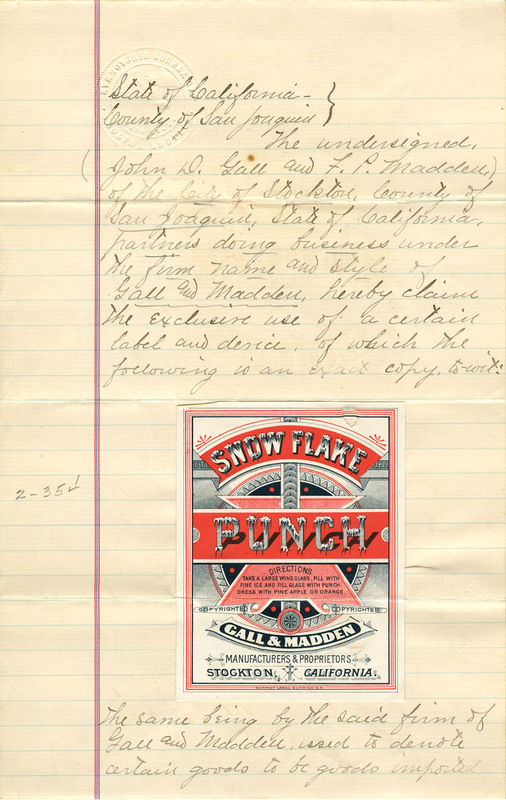 State of California -
County of San Joaquin }
The undersigned,
(John D. Gall and F. P. Madden,)
of the City of Stockton, County of
San Joaquin, State of California,
partners doing business under
the firm name and style of
Gall and Madden, hereby claim
the exclusive use of a certain
label and device, of which the
following is an exact copy, to-wit:
SNOW FLAKE
PUNCH
DIRECTIONS
TAKE A LARGE WINE GLASS, FILL WITH
FINE ICE AND FILL GLASS WITH PUNCH.
DRESS WITH PINE APPLE OR ORANGE.
COPYRIGHTED COPYRIGHTED
GALL & MADDEN
MANUFACTURERS & PROPRIETORS
STOCKTON, CALIFORNIA.
SCHMIDT LABEL & LITHO CO. S.F.
2-354
The same being by the said firm of
Gall and Madden used to denote
certain goods to be goods imported